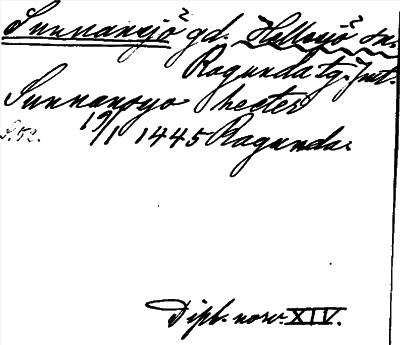 Sunnansjö gd. Hällesjö sn.
Ragunda tg. Jmt.
Sunnansyo hester
19/1 1445 Ragunda.
Dipl. norv. XIV.